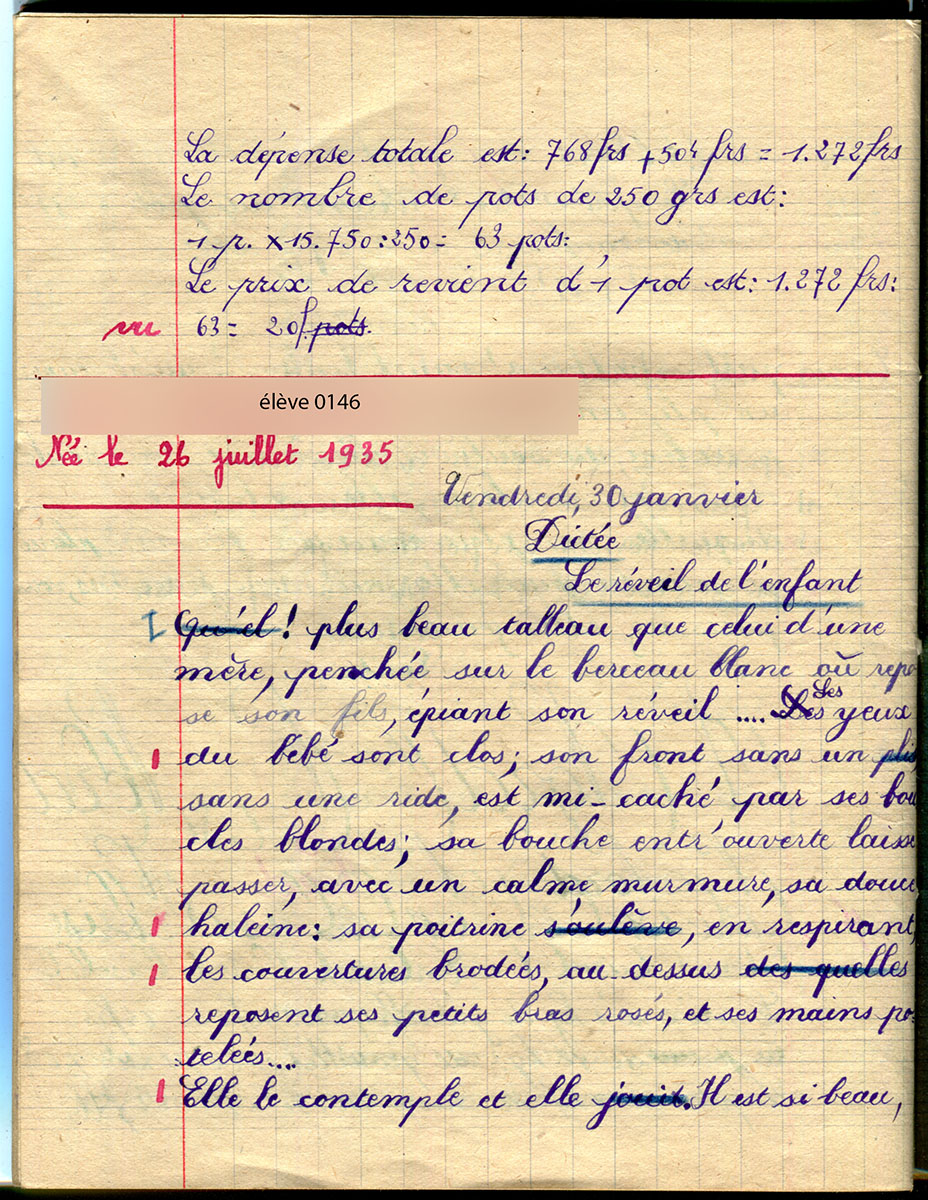 La dépense totale est: 768frs + 504 frs = 1.272frs
Le nombre de pots de 250 grs est:
1 p. x 15.750:250= 63 pots:
Le prix de revient d'1 pot est: 1.272 frs:
vu 63= 20f pots.
élève 0146
Née le 26 juillet 1935
Vendredi, 30 janvier
Dictée
Le réveil de l'enfant
I Qu'el! plus beau talleau que celui d'une
mère, penchée sur le berceau blanc où repo
se son fils, épiant son réveil .... Les Les yeux
du bébé sont clos; son front sans un plis,
sans une ride, est mi-caché par ses bou
cles blondes; sa bouche entr'ouverte laisse
passer, avec un calme murmure, sa douce
haleine: sa poitrine s'oulève, en respirant,
les couvertures brodées, au-dessus des quelles
reposent ses petits bras rosés, et ses mains po
telées...
Elle le contemple et elle jouit. Il est si beau,